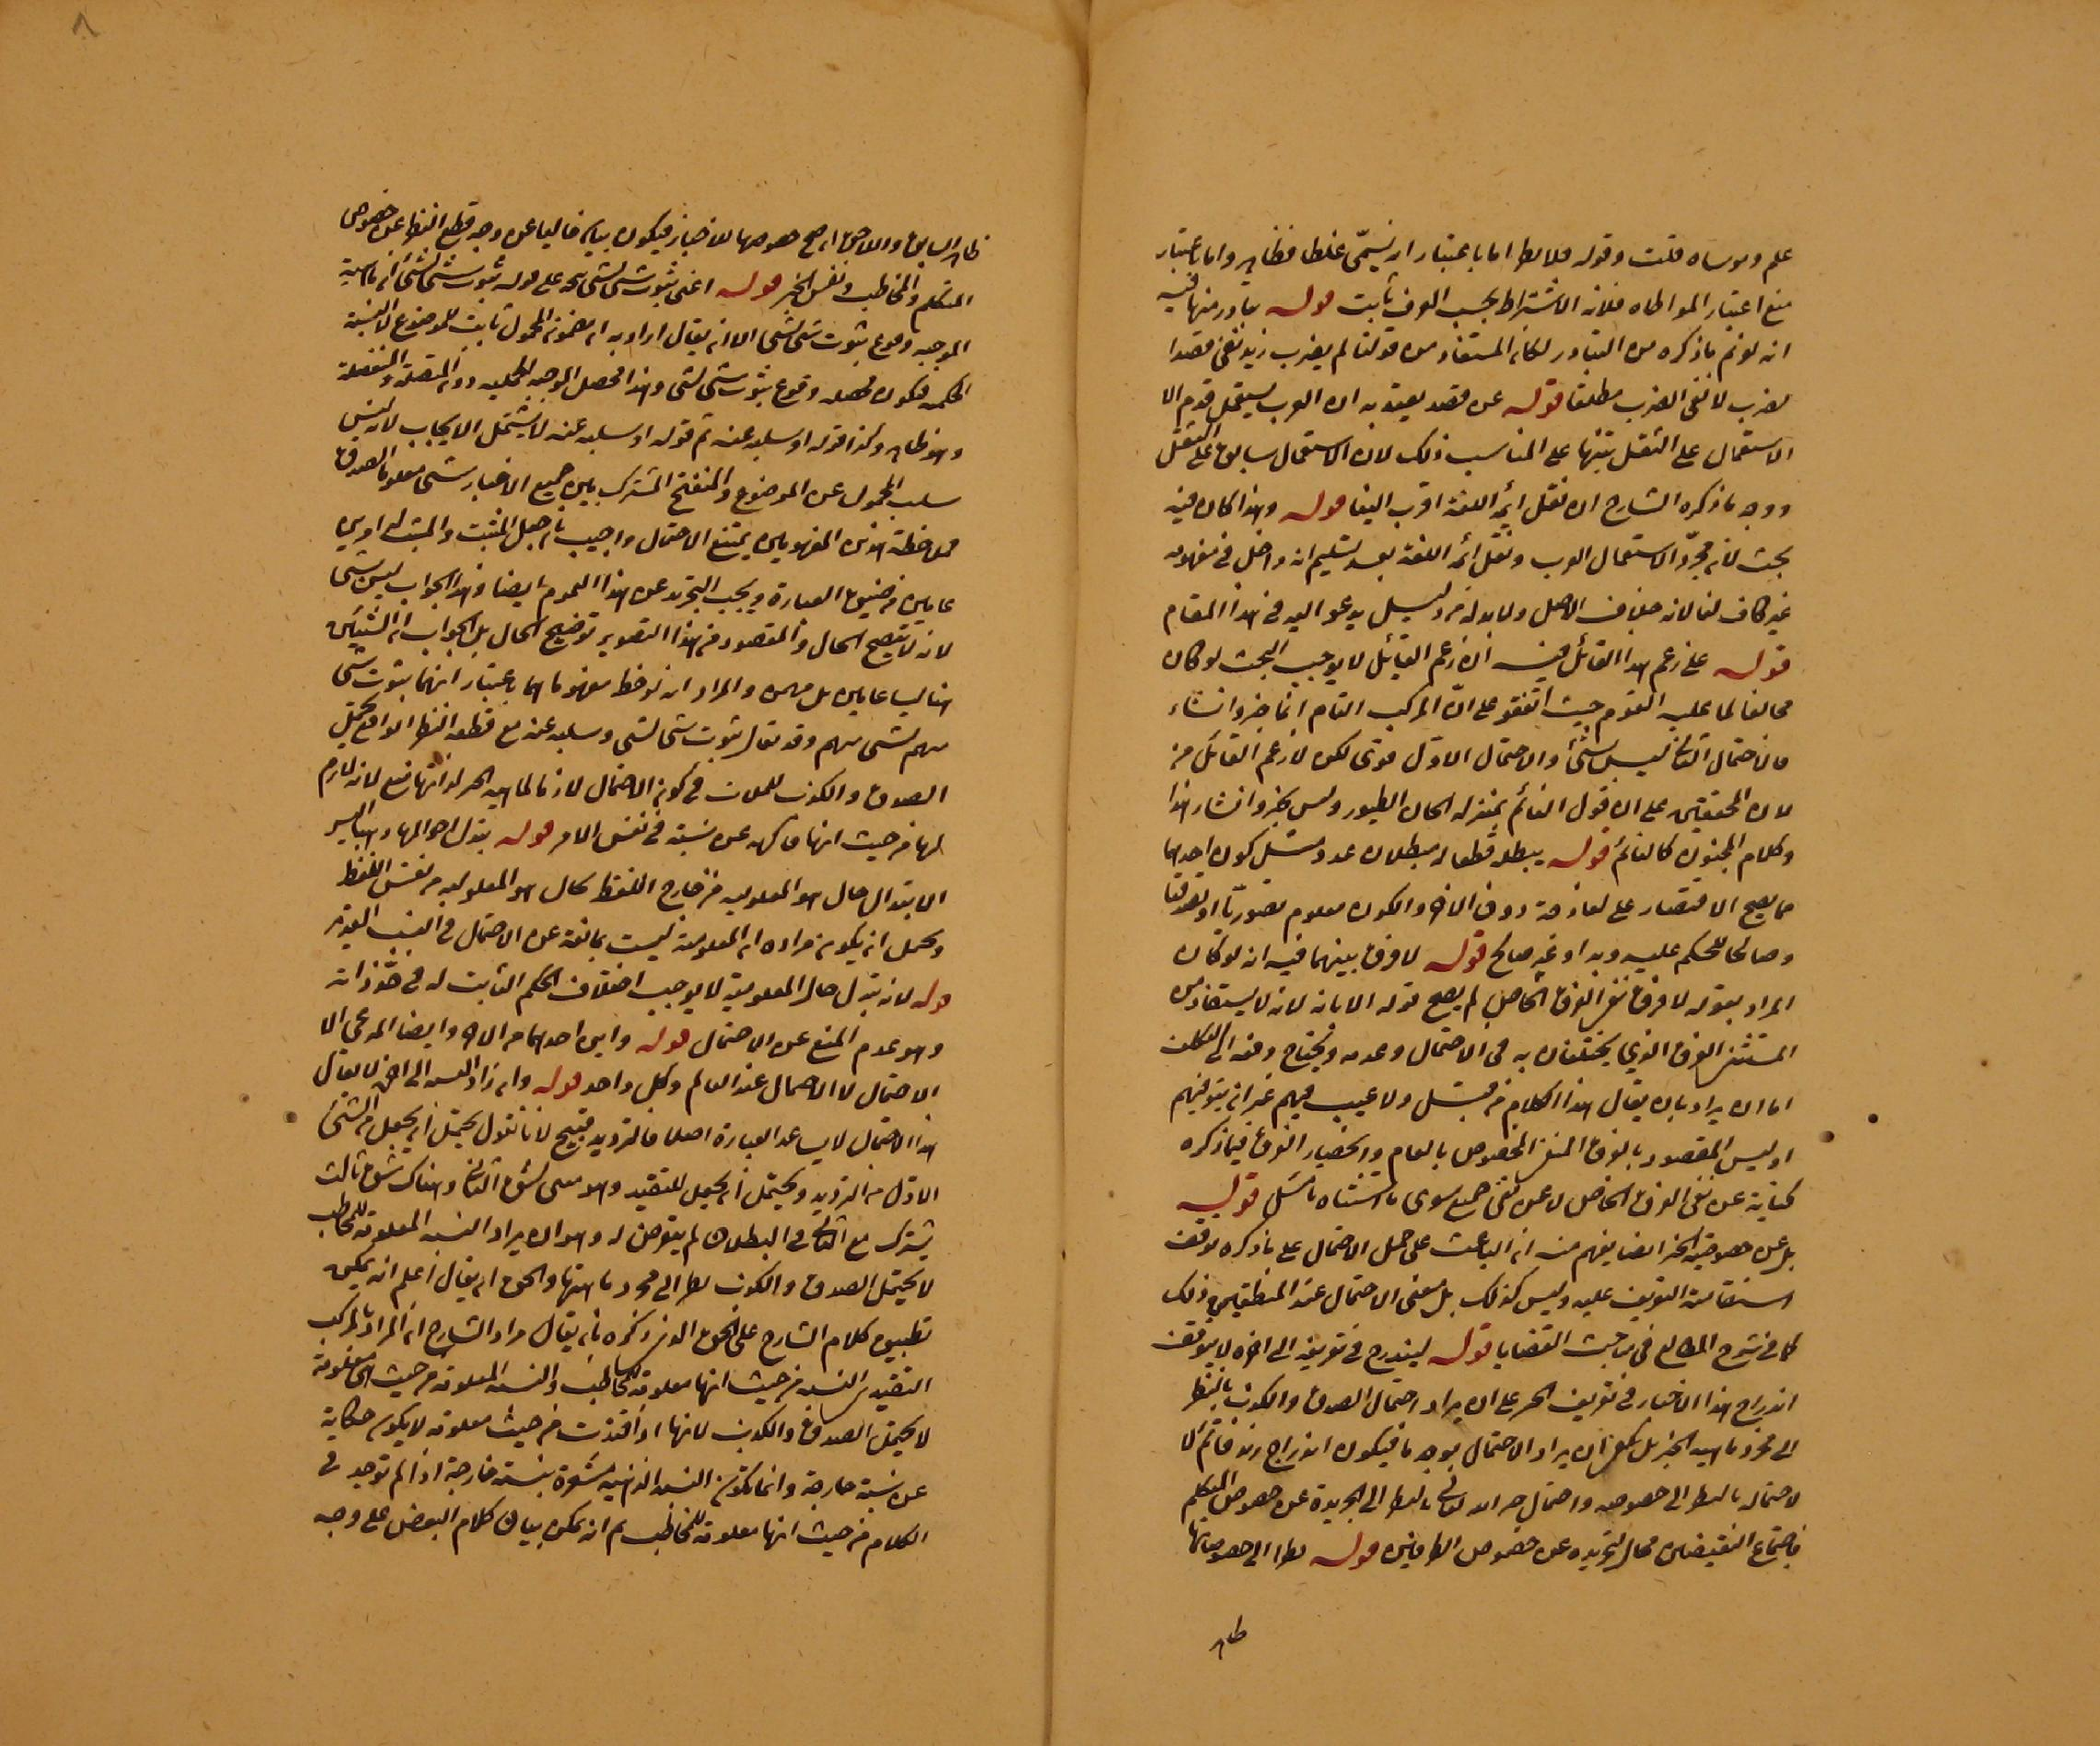 علم وموساه قلت وقوله فلا يطرا اما باعتبار ان يسمّى غلطا فظاهر واما باعتبار
منع اعتبار المواطاه فلان الاشتراط بحسب العرف ثابت قوله يتبادر منها فيه
انه لو تم ما ذكره من التبادر لكان المستفاد من قولنا لم يضرب زيد نفى قصد
لضرب لا نفى الضرب مطلقا قوله عن قصد يعتد به ان العرب يستعمل قدم الا
الاستعمال على النقل تنبيها على المناسب ذلك لان الاستعمال سابق على النقل
ووجه ما ذكره الشارح ان نقل ايمة اللغة اقرب الينا قوله وهذا كان فيه
بحث لانه مجرّد الاستعمال العرب ونقل ائمه اللغة بعد تسليم انه داخل في مفهومه
غير كاف لنا لانه خلاف الاصل ولا بد له من دليل يدعو اليه في هذا المقام
قوله على زعم هذا القائل فيه ان زعم القايل لا يوجب البحث لو كان
مخالفا لما عليه القوم حيث اتفقو على انّ المركب التام اما خبر وانشاء
فالاحتمال الثاني ليس بشئ والاحتمال الاول قوى لكن لا زعم القائل من
لان المحققين على ان قول النائم بمنزله الحان الطيور وليس بخبر وانشاء هذا
وكلام المجنون كالنائم قوله يبطله قطعا له مبطلان عدد مثل كون احدهما
مما يصح الاقتصار على دون الاخر والكون معلوم تصوريّا او تصديقيّا
وصالحا للحكم عليه وبه او غير صالح قوله لا فرق بينهما فيه انه لو كان
المراد بقوله لا فرق نفى الفرق الخاص لم يصح قوله الا بانه لانه لا يستفاد من
المستثنى الفرق الذي يختلفان به فى الاحتمال وعدمه ويحتاج دفعه الى التكلف
اما ان يراد بان يقال هذا الكلام من قبيل ولا عيب فيهم غير ان سيوفهم
او ليس المقصود بالفرق المنفى المخصوص بالعام وانحصار الفرق فيما ذكره
كناية عن نفى الفرق الخاص لا عن نفى جميع سوى ما استثناه تامل قوله
بل عن خصوصية الخبر ايضا يفهم منه ان الباعث على حمل الاحتمال على ما ذكره توقف
استقامة التعريف عليه وليس كذلك بل معنى الاحتمال عند المنطقيين ذلك
كما في شرح المطالع في مباحث القضايا قوله ليندرج في تعريفه الى اخره لا يتوقف
اندراج هذا الاخبار في تعريف الخبر على ان يراد احتمال الصدق والكذب بالنظر
الى مجرد ماهيه الخبر بل يكفى ان يراد الاحتمال بوجه ما فيكون اندراج زيد قائم لا
لاحتماله بالنظر الى خصوصه واحتمال خبر الله تعالى بالنظر الى تجريده عن خصوص المتكلم
فاجتماع النقيضين محال لتجريده عن خصوص الطرفين قوله نظرا الى خصوصياتها
ظاهر
ظاهر السابق واللاحق ان مع خصوصها للاخبار فيكون بيانه خاليا عن وجه قطع النظر عن خصوص
المتكلم والمخاطب ونفس الخبر قوله اعنى ثبوت شئ لشئ يتجه على قوله ثبوت شئ لشئ ان ماهية
الموجبه وقوع ثبوت شئ لشئ الا ان يقال اراد به ان مضمونه المحمول ثابت للموضوع لا النسبة
الحكمية فيكون محصله وقوع ثبوت شئ لشئ وهذا محصل الموجبه الحمليه دون المتصلة والمنفصلة
وهو ظاهر وكذا قوله او سلبه عنه ثم قوله او سلبه عنه لا يشتمل الايجاب لانه ليس
سلب المحمول عن الموضوع والمنفتح المشترك بين جميع الاخبار شئ معلوم الصدق
فملاحظة هذين المفهومين يمتنع الاحتمال واجيب بان جعل المثبت والمثبت له امرين
عامين من ضيق العبارة ويجب التجريد عن هذا العموم ايضا وهذا الجواب ليس بشئ
لانه لا يتضح الحال والمقصود من هذا التصوير توضيح الحال بل الجواب ان الشيئين
هنا ليسا عامين بل مبهمين والمراد انه لوحظ مفهوماهما باعتبار انهما ثبوت شئ
مبهم لشئ مبهم وقد يقال ثبوت شئ لشئ وسلبه عنه مع قطع النظر الواقع يحتمل
الصدق والكذب في كون الاحتمال لازما لماهيه الخبر لذاتها منع لانه لازم
لها من حيث انها حاكيه عن نسبة في نفس الامر قوله بتبدل احوالها وهناليس
الابتدال حال هو المعلوميه من خارج اللفظ بحال هو المعلوميه من نفس اللفظ
ويحتمل ان يكون مراده ان المعلومية ليست مانعة عن الاحتمال في النسب التقييدية
قوله لانه تبدل حال المعلومية لا يوجب اختلاف الحكم الثابت له في حدّ ذاته
وهو عدم المنع عن الاحتمال قوله واين احدهما من الاخر وايضا المدعى الا
الاحتمال لا الاحتمال عند العالم وكل واحد قوله وان زاد النسبه الى اخره لا يقال
هذا الاحتمال لا يساعد العبارة اصلا فالترديد قبيح لانا نقول يحتمل ان يجعل من الشئ
الاول من الترديد ويحتمل ان يجعل للتقييد وهو معنى الشق الثاني وهناك شق ثالث
يشترك مع الثاني في البطلان لم يتعرض له وهو ان يراد النسبه المعلومة للمخاطب
لا يحتمل الصدق والكذب نظرا الى مجرد ماهيتها والحق ان يقال اعلم انه يمكن
تطبيق كلام الشارح على الحق الذى ذكره بان يقال مراد الشارح ان المراد بالمركب
التقييدى النسبه من حيث انها معلومة للمخاطب والنسبه المعلومة من حيث انها معلومة
لا يحتمل الصدق والكذب لانها اذا اخذت من حيث معلومة لا يكون حكاية
عن نسبة خارجة وانما تكون النسبه الذهنيه مشعرة بنسبة خارجة اذا لم توجد في
الكلام من حيث انها معلومة للمخاطب ثم انه يمكن بيان كلام البعض على وجه